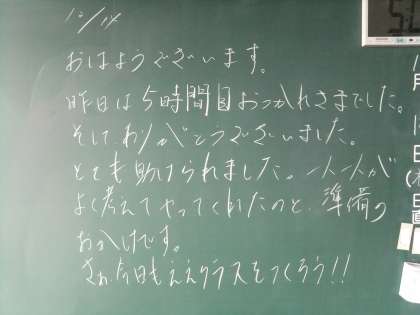 12/14
おはようございます。
昨日は5時間目おつかれさまでした。
そしてありがとうございました。
とても助けられました。一人一人が
よく考えてやってくれたのと、準備の
おかげです。
さぁ今日もええクラスをつくろう!!
月
日